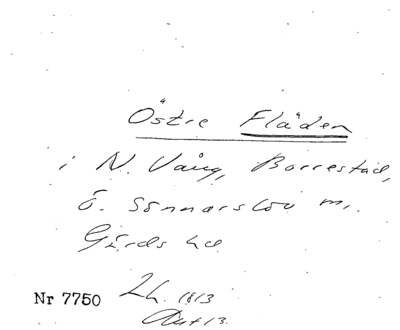 Östre Fläden
i N. Vång, Borrestad,
Ö. Sönnarslöv m,
Gärds hd
Nr 7750 Lh. 1813